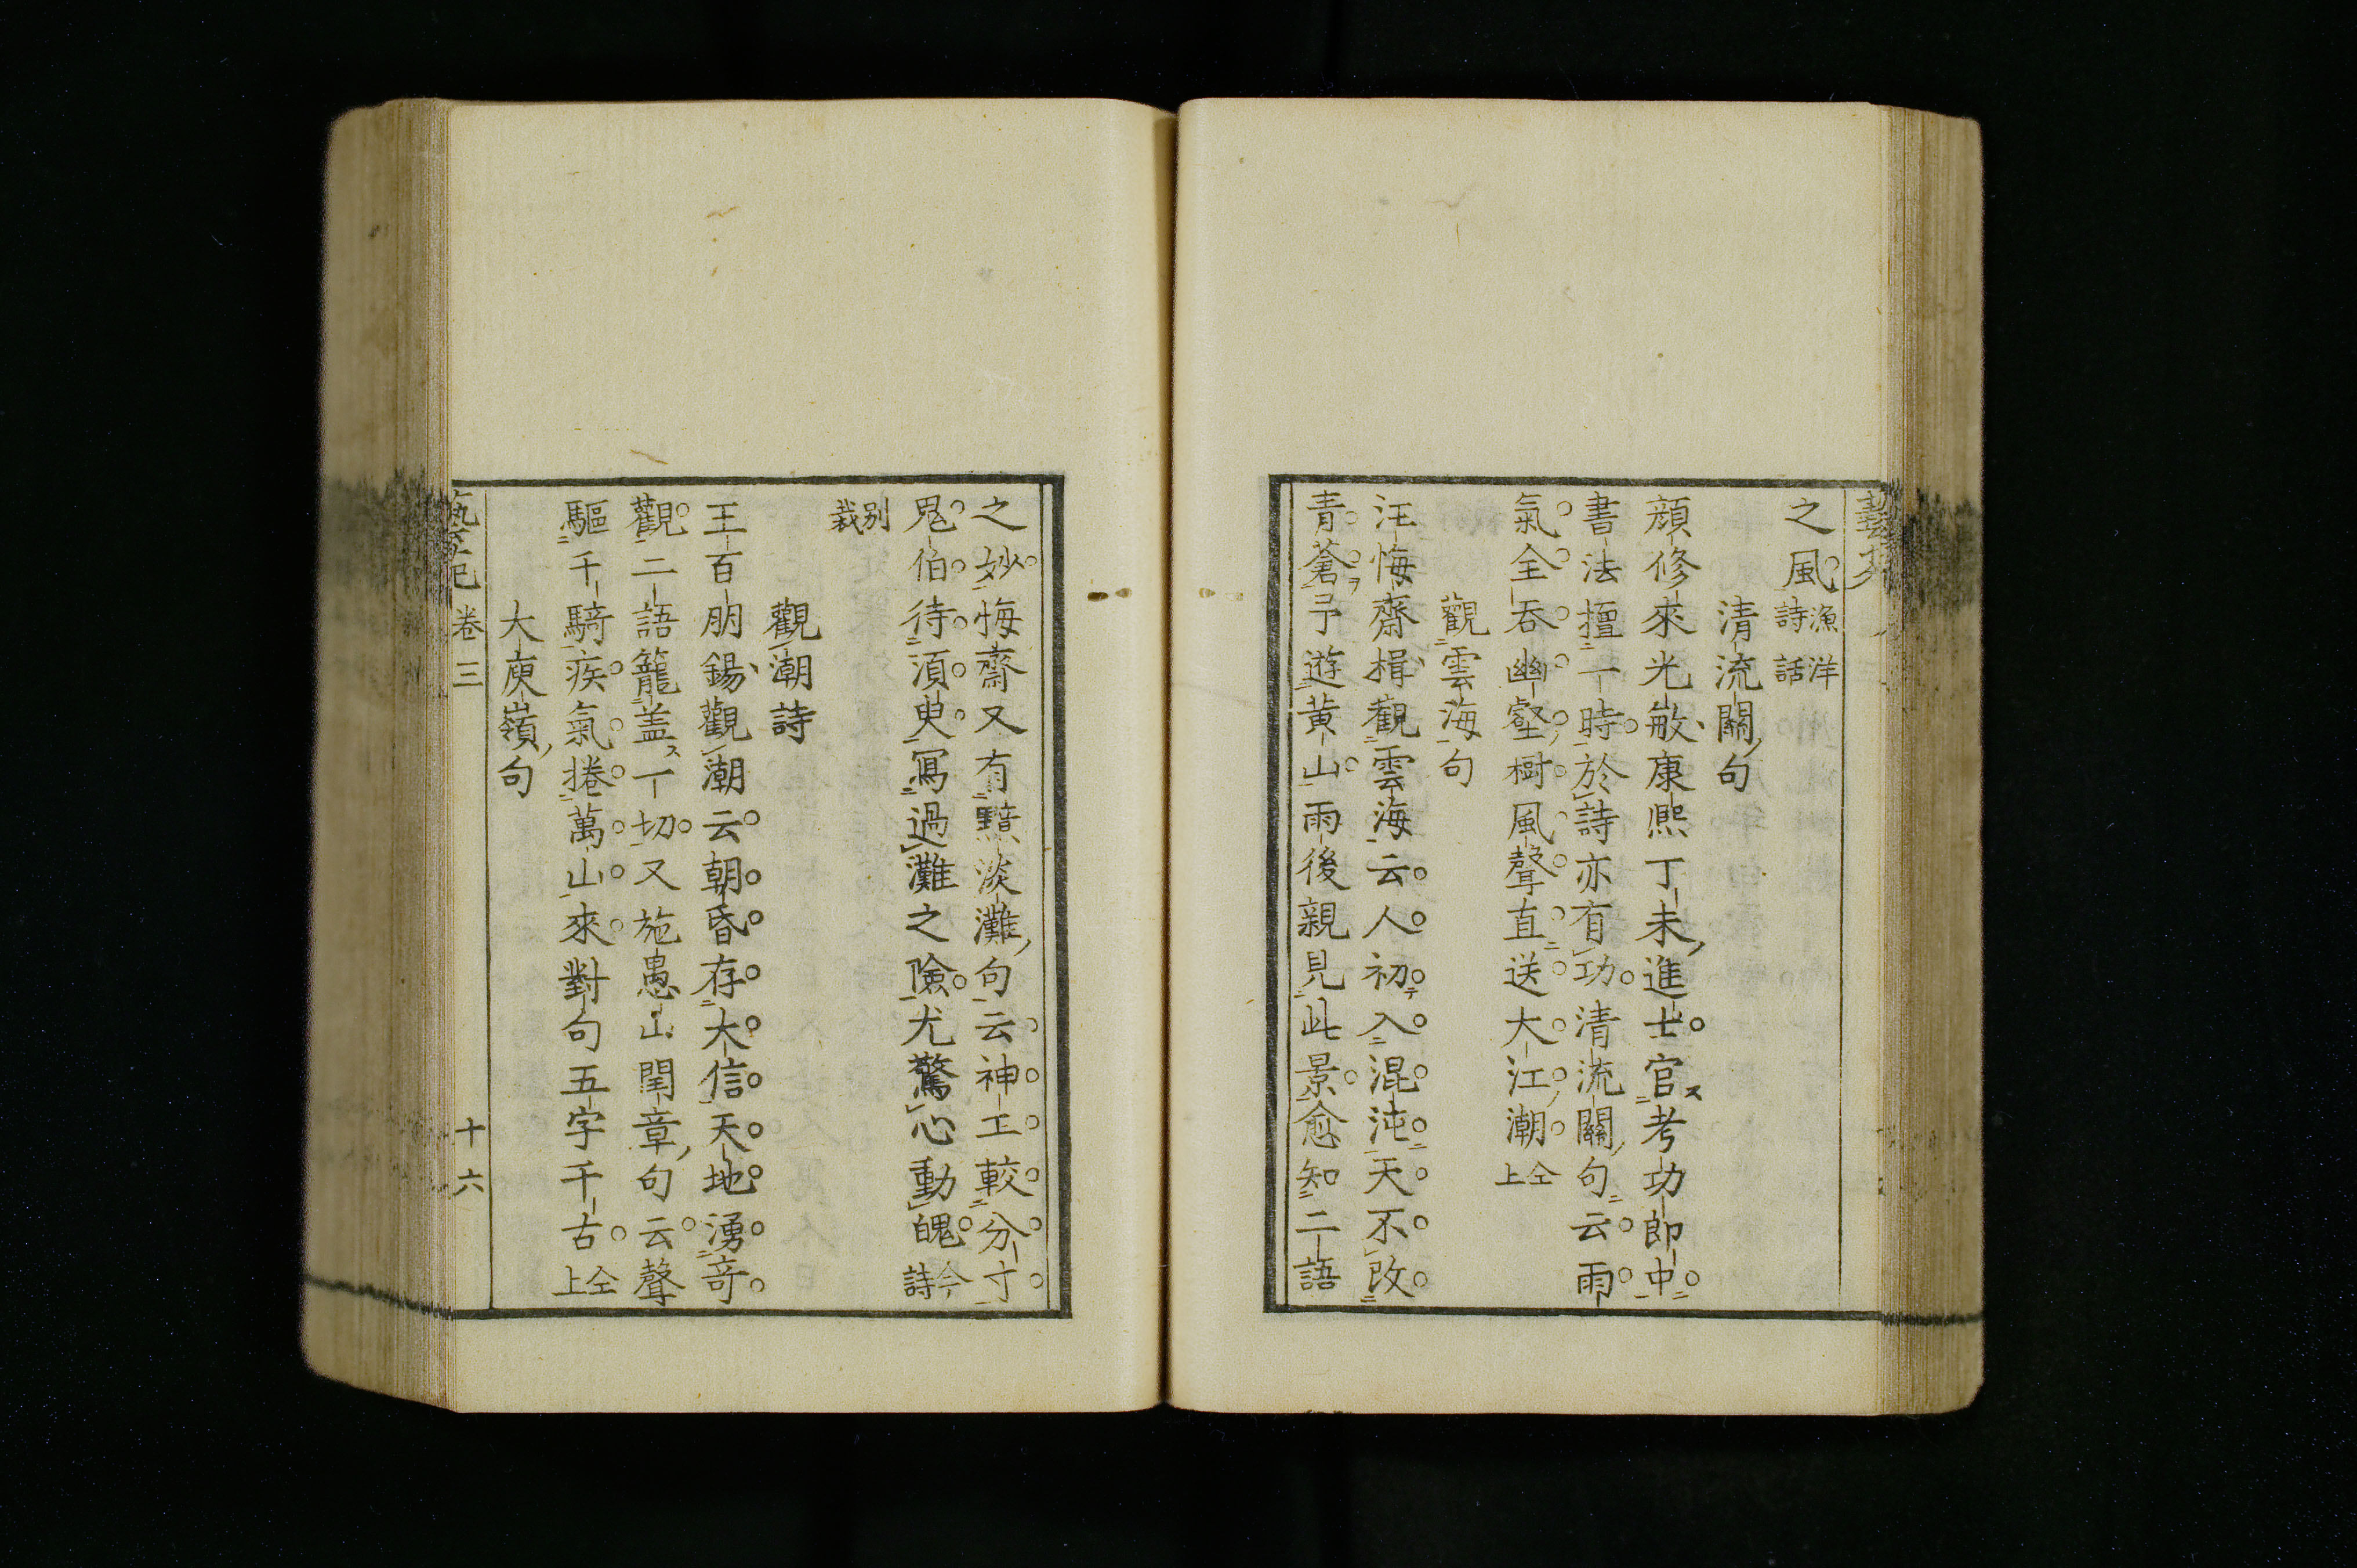 之風漁洋詩話
清流關句
顔修來光敏康熙丁未進士官考功郎中
書法擅一時於詩亦有功清流關句云雨
氣全吞幽壑樹風聲直送大江潮仝上
觀雲海句
汪悔齋楫觀雲海云人初入混沌天不改
青蒼予遊黄山雨後親見此景愈知二語
之妙悔齋又有黯淡灘句云神工較分寸
鬼伯待須臾寫過灘之險尤驚心動魄今詩
别裁
觀潮詩
王百朋錫觀潮云朝昏存大信天地湧奇
觀二語籠盖一切又施愚山閏章句云聲
驅千騎疾氣捲萬山來對句五字千古仝上
大庾嶺句
卷三
十六